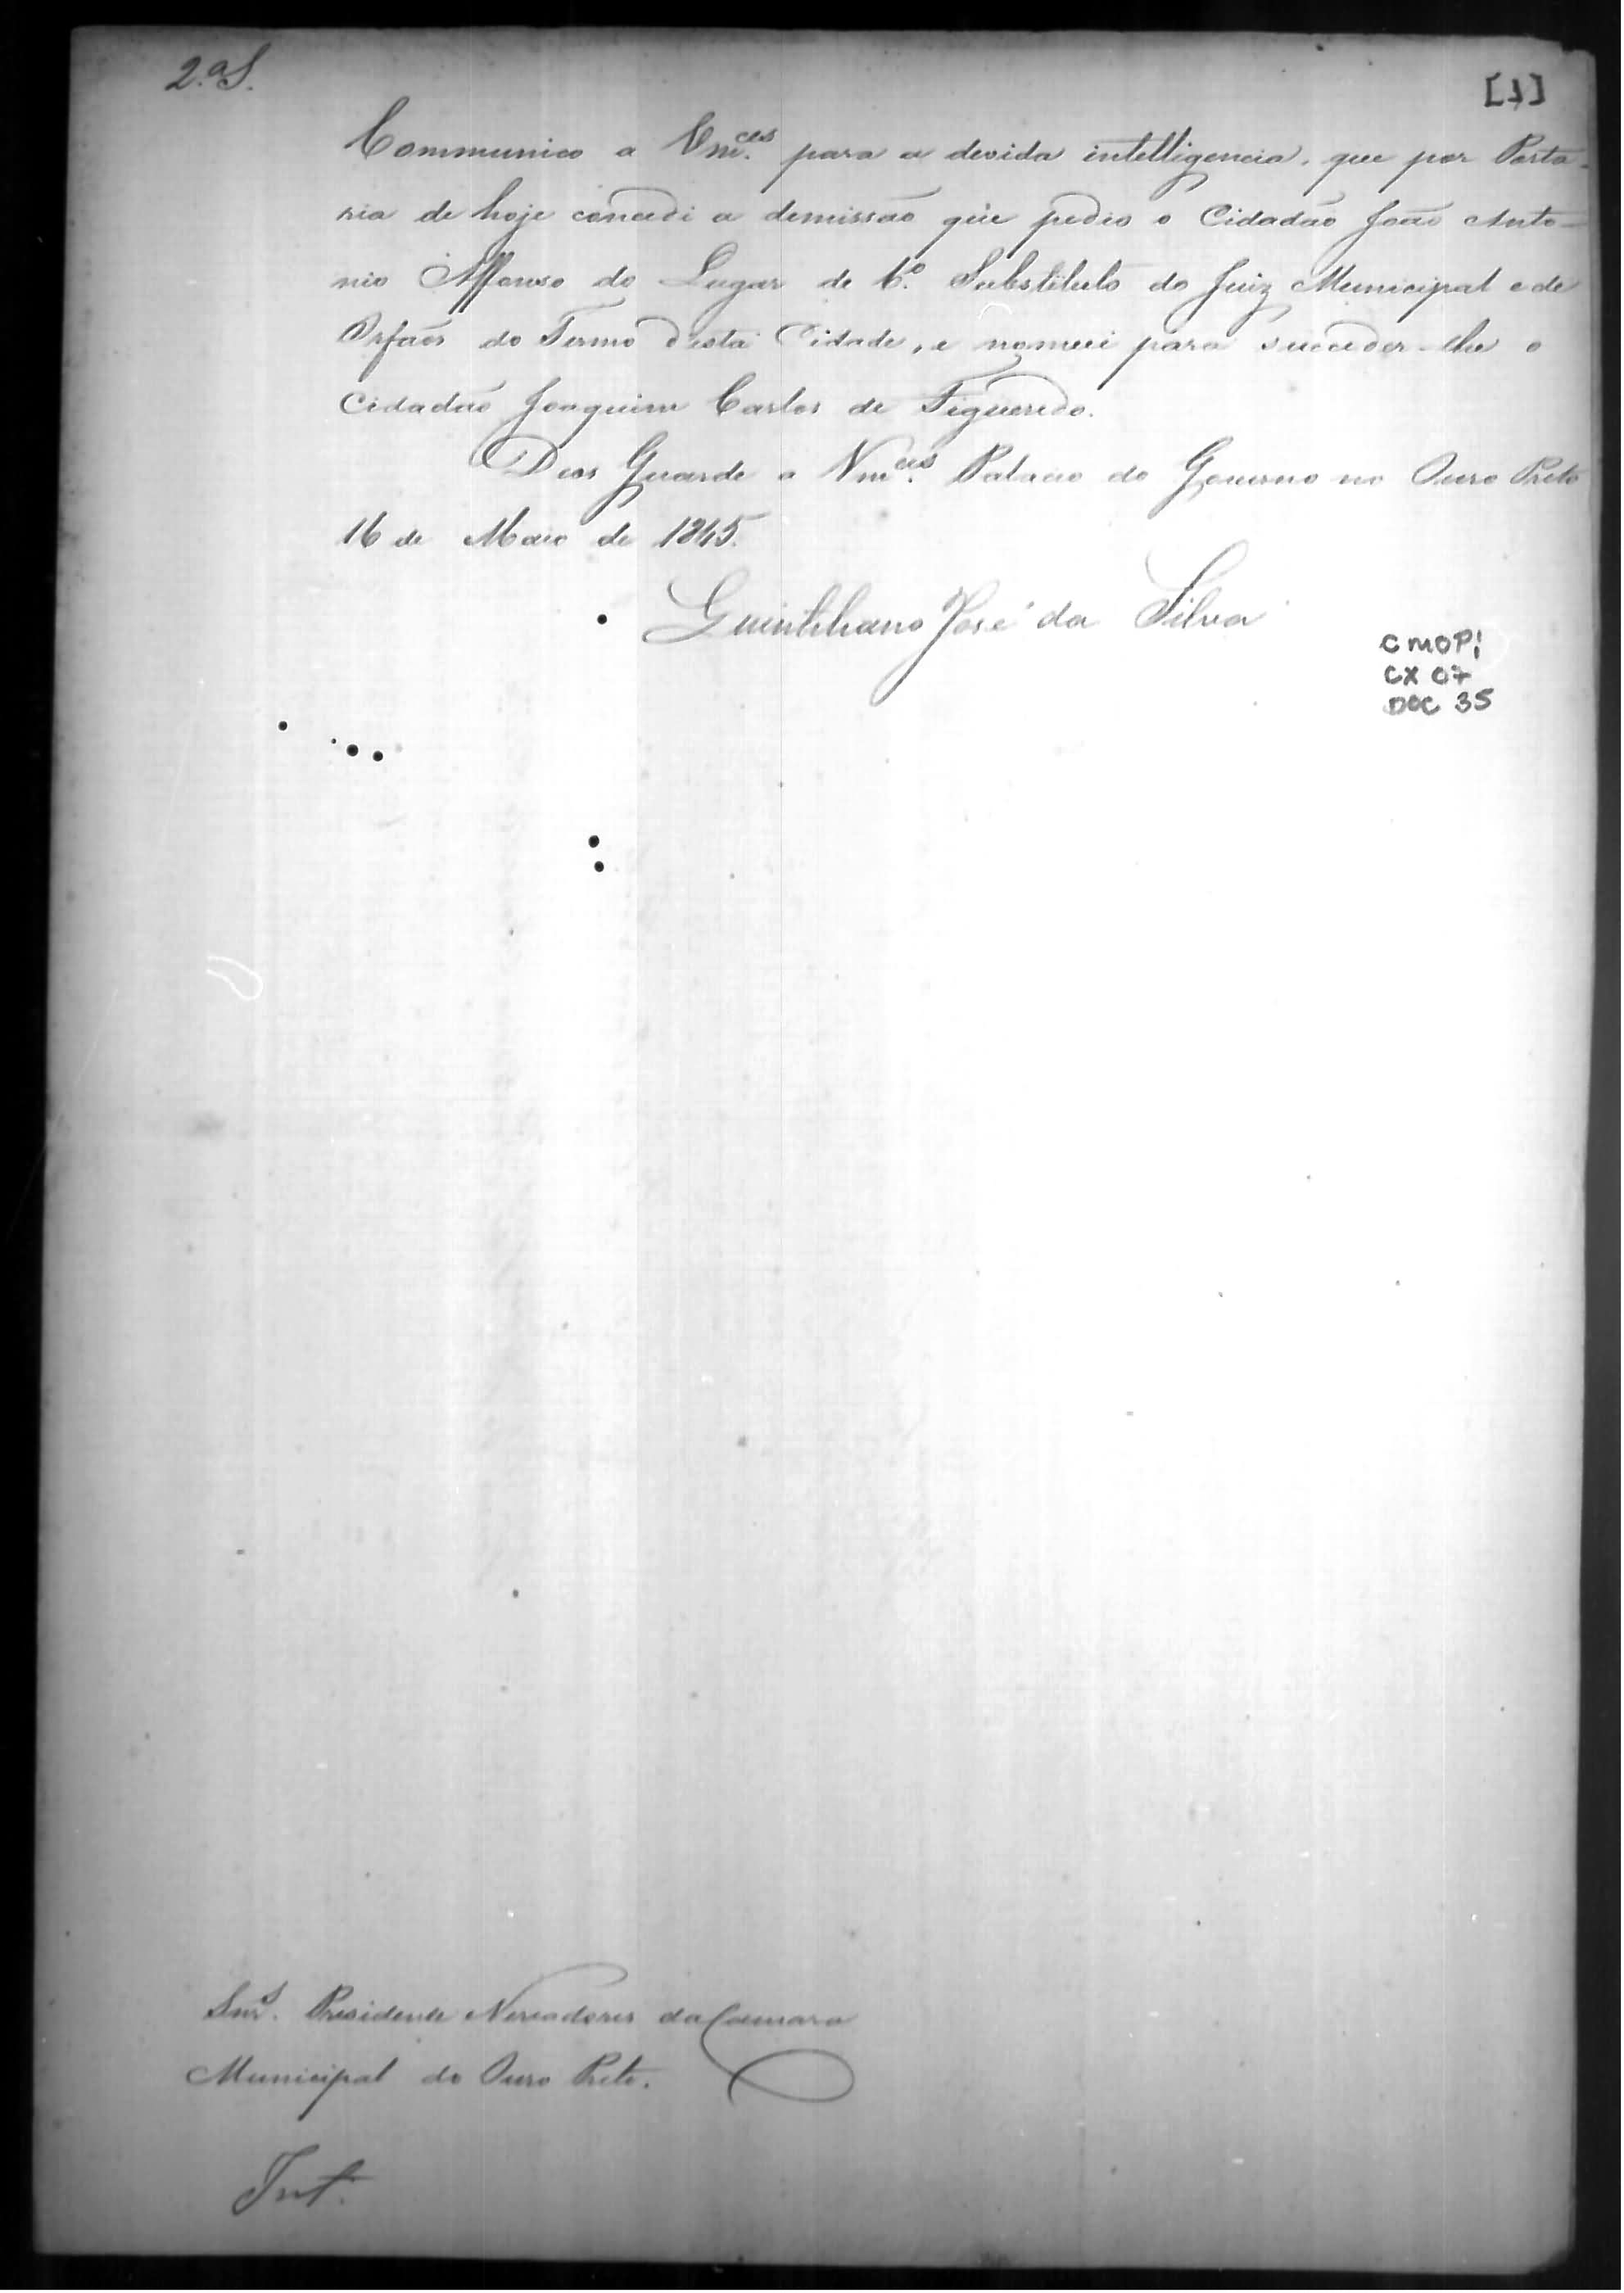 2.ª S.
[1]
Communico a Vm.ces para a devida intelligencia, que por Porta-
ria de hoje concedi a demissão que pedio o Cidadão João Anto-
nio Affonso do Lugar de 6.º Substituto do Juiz Municipal e de
Orfãos do Termo d'esta Cidade, e nomeei para succeder-lhe o
Cidadão Joaquim Carlos de Figueredo.
Deos Guarde a Vm.ces Palacio do Governo no Ouro Preto
16 de Maio de 1845.
Quintiliano José da Silva
CMOP;
CX 07
DOC 35
Snrs. Presidente Vereadores da Camara
Municipal do Ouro Preto.
Int.